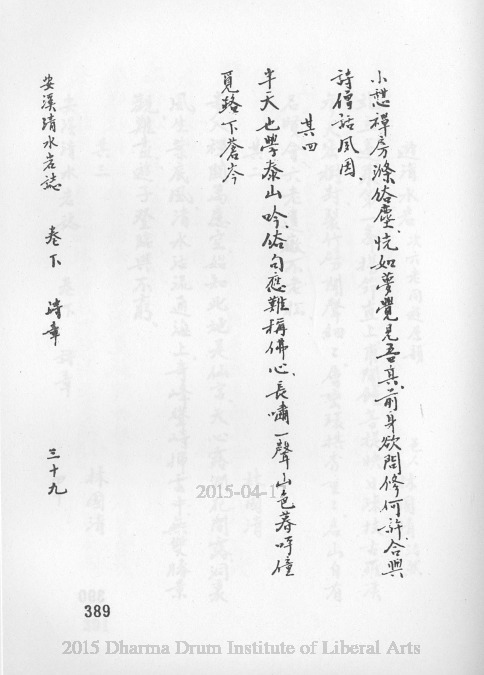 小憩禪房滌俗塵、恍如夢覺見吾真、前身欲問修何許、合與
詩僧話夙因、
其四
半天也學泰山吟、俗句應難稱佛心、長嘯一聲山色暮、呼僮
覓路下蒼岑
安溪清水岩誌 卷下 詩章 三十九
389
2015-04-1
2015 Dharma Drum Institute of Liberal Arts